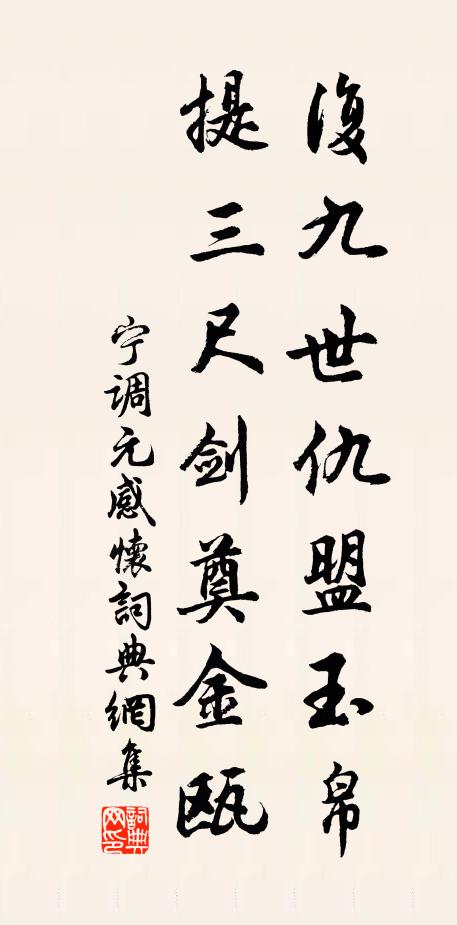 復九世仇盟玉帛
提三尺剑奠金瓯
宁调元感懷詞典網集
詞典網印